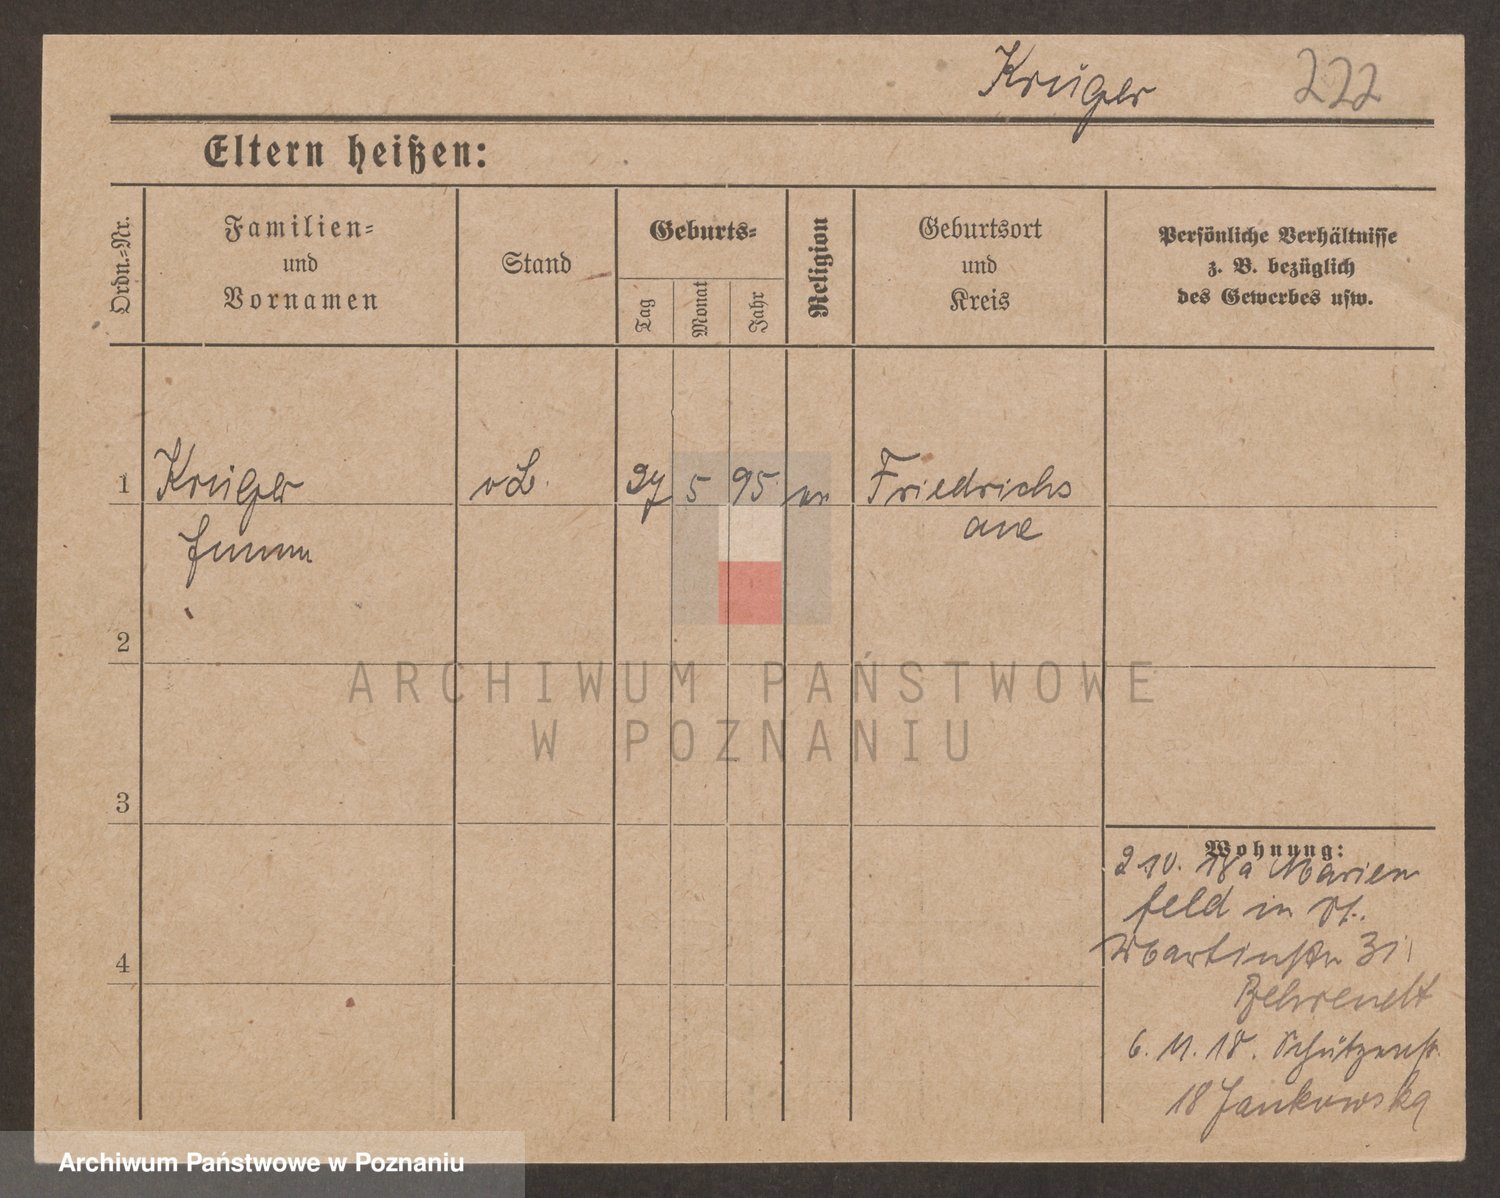 Krüger 222
Eltern heißen:
Ordn.-Nr.
Familien-
und
Vornamen
Stand
Geburts-
Tag
Monat
Jahr
Religion
Geburtsort
und
Kreis
Persönliche Verhältnisse
z. B. bezüglich
des Gewerbes usw.
1 Krüger vL. 27 5 95 Friedrichs
aue
2
3
4
Wohnung:
2 10. 18 a Marien
feld in
Martinstr 31
Behrendt
6. 11. 18. Schützenstr.
18 Jankowska
ARCHIWUM PAŃSTWOWE
W POZNANIU
Archiwum Państwowe w Poznaniu